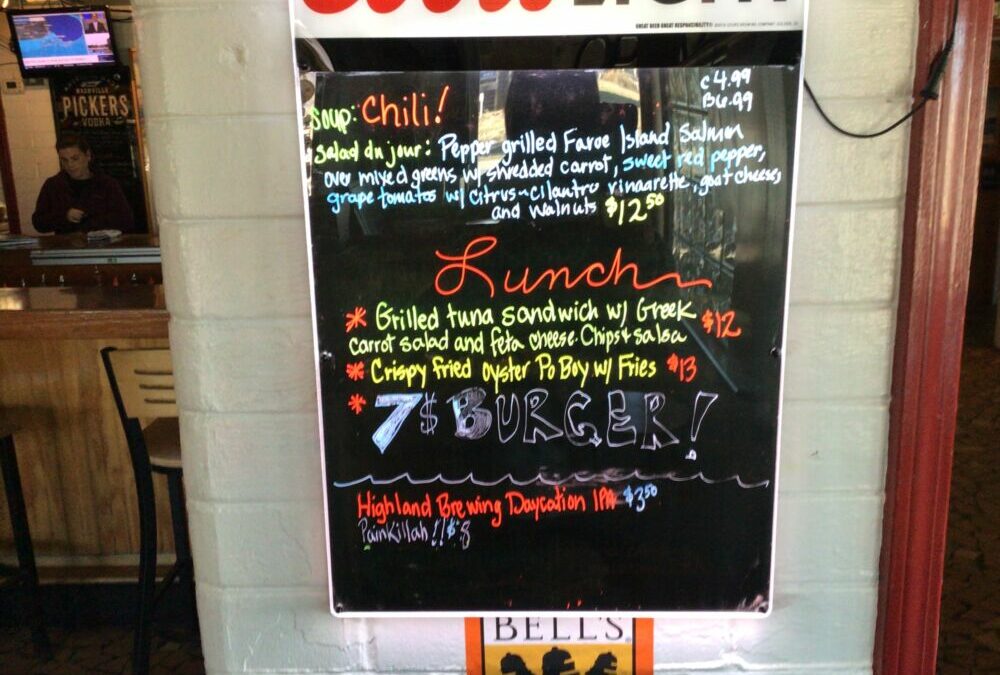 Coors LIGHT
GREAT BEER GREAT RESPONSIBILITY
Soup: Chili!
C 4.99
B 6.99
Salad du jour: Pepper grilled Faroe Island Salmon
over mixed greens w/ shredded carrot, sweet red pepper,
grape tomatos w/ citrus-cilantro vinaarette, goat cheese,
and walnuts $12.50
Lunch
* Grilled tuna sandwich w/ Greek
carrot salad and feta cheese. Chips & salsa $12
* Crispy fried oyster Po Boy w/ Fries $13
* 7$ BURGER!
Highland Brewing Daycation IPA $3.50
Painkillah!! $8
BELL'S
NASHVILLE
PICKERS
VODKA